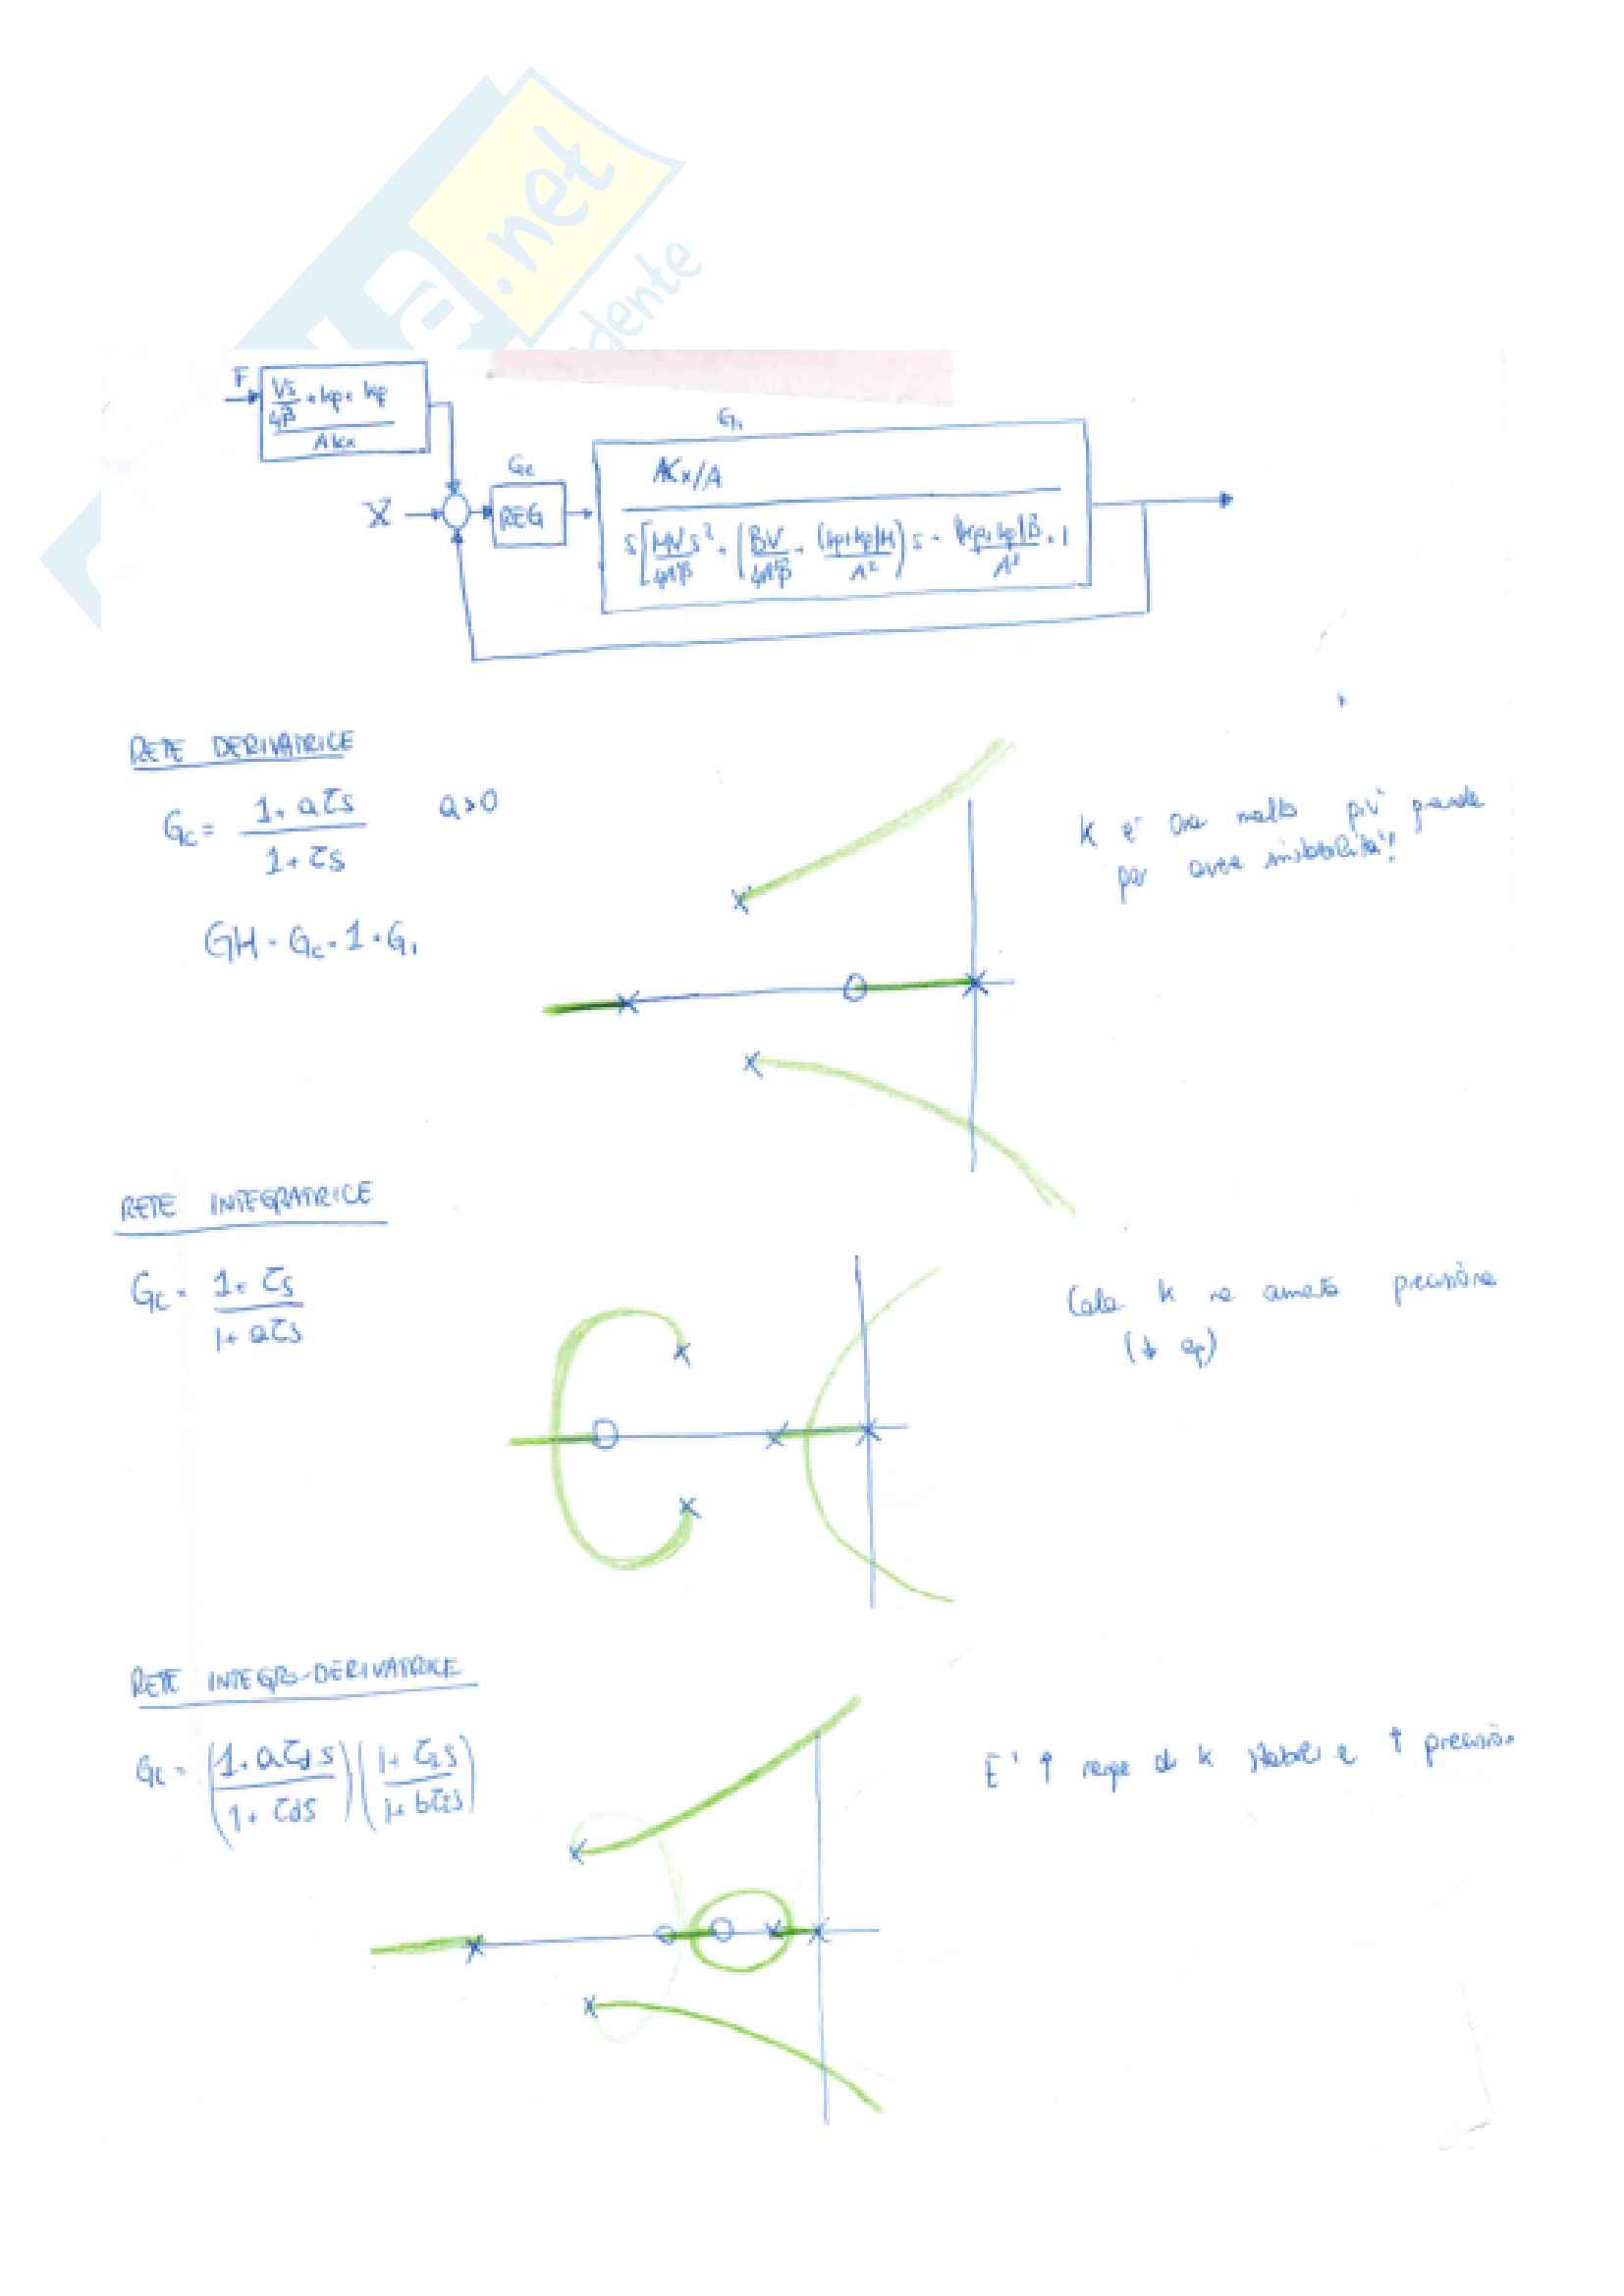 la
.net
dente
F
Vs/4β + kp + kp
Akx
G1
Gc
X
REG
AKx/A
s[MVs²/4A²β + (BV/4A²β + (kp+kp)M/A²)s + (kp+kp)B/A² + 1
RETE DERIVATRICE
Gc = 1+aτs / 1+τs
a>0
GH = Gc · 1 · G1
K è ora molto più grande
per avere instabilità!
RETE INTEGRATRICE
Gc = 1+τs / 1+aτs
Cala K precisione
RETE INTEGRO-DERIVATRICE
Gc = (1+aτds / 1+τds)(1+τis / 1+bτis)
E' ↑ range di K stabile e ↑ precisio.